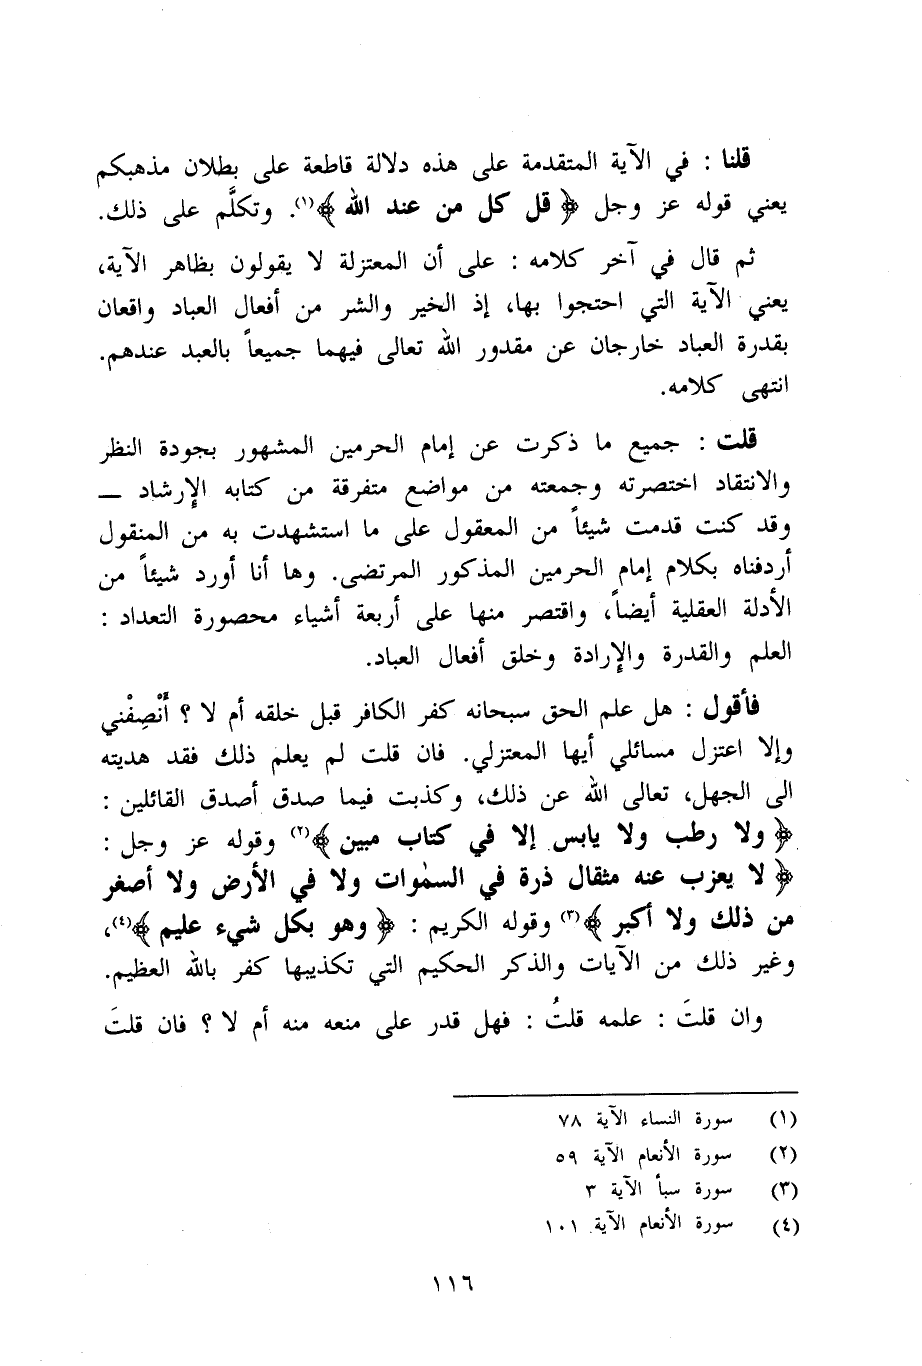 قلنا : في الآية المتقدمة على هذه دلالة قاطعة على بطلان مذهبكم
يعني قوله عز وجل ﴿قل كل من عند الله﴾(١). وتكلَّم على ذلك.
ثم قال في آخر كلامه : على أن المعتزلة لا يقولون بظاهر الآية،
يعني الآية التي احتجوا بها، إذ الخير والشر من أفعال العباد واقعان
بقدرة العباد خارجان عن مقدور الله تعالى فيهما جميعاً بالعبد عندهم.
انتهى كلامه.
قلت : جميع ما ذكرت عن إمام الحرمين المشهور بجودة النظر
والانتقاد اختصرته وجمعته من مواضع متفرقة من كتابه الإرشاد —
وقد كنت قدمت شيئاً من المعقول على ما استشهدت به من المنقول
أردفناه بكلام إمام الحرمين المذكور المرتضى. وها أنا أورد شيئاً من
الأدلة العقلية أيضاً، واقتصر منها على أربعة أشياء محصورة التعداد :
العلم والقدرة والإرادة وخلق أفعال العباد.
فأقول : هل علم الحق سبحانه كفر الكافر قبل خلقه أم لا ؟ أَنْصِفْني
وإلا اعتزل مسائلي أيها المعتزلي. فان قلت لم يعلم ذلك فقد هديته
الى الجهل، تعالى الله عن ذلك، وكذبت فيما صدق أصدق القائلين :
﴿ولا رطب ولا يابس إلا في كتاب مبين﴾(٢) وقوله عز وجل :
﴿لا يعزب عنه مثقال ذرة في السمٰوات ولا في الأرض ولا أصغر
من ذلك ولا أكبر﴾(٣) وقوله الكريم : ﴿وهو بكل شيء عليم﴾(٤)،
وغير ذلك من الآيات والذكر الحكيم التي تكذيبها كفر بالله العظيم.
وان قلتَ : علمه قلتُ : فهل قدر على منعه منه أم لا ؟ فان قلتَ
(١) سورة النساء الآية ٧٨
(٢) سورة الأنعام الآية ٥٩
(٣) سورة سبأ الآية ٣
(٤) سورة الأنعام الآية ١٠١
١١٦